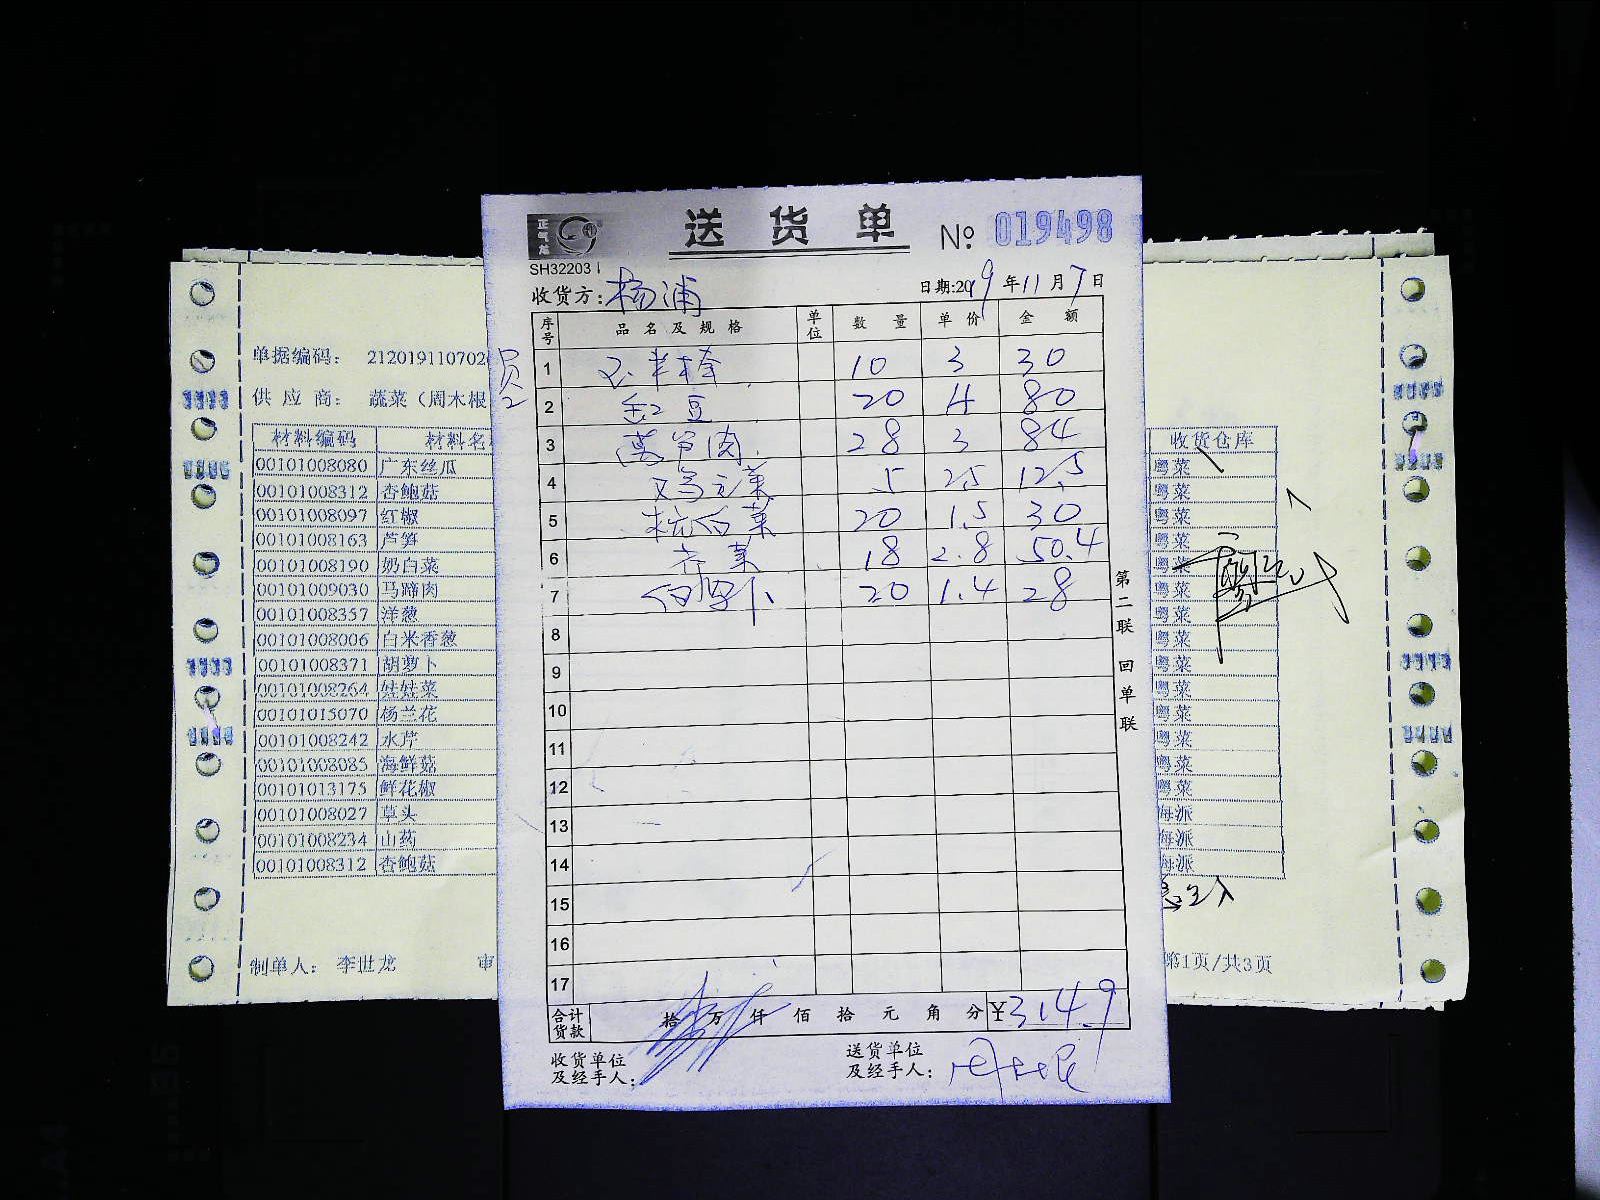 正气龙
送货单 № 019498
SH32203
收货方: 杨浦 日期:2019年11月7日
序号 品名及规格 单位 数量 单价 金额
员2
1 玉米棒 10 3 30
2 缸豆 20 4 80
3 莴笋肉 28 3 84
4 5 2.5 12.5
5 杭白菜 20 1.5 30
6 芹菜 18 2.8 50.4
7 白罗卜 20 1.4 28
8
9
10
11
12
13
14
15
16
17
合计货款 拾万仟佰拾元角分 ¥314.9
收货单位及经手人:
送货单位及经手人: 周木根
第二联 回单联
单据编码: 21201911070
供应商: 蔬菜(周木根
材料编码 材料名 收货仓库
00101008080 广东丝瓜 粤菜
00101008312 杏鲍菇 粤菜
00101008097 红椒 粤菜
00101008163 芦笋 粤菜
00101008190 奶白菜 粤菜
00101009030 马蹄肉 粤菜
00101008357 洋葱 粤菜
00101008006 白米香葱 粤菜
00101008371 胡萝卜 粤菜
00101008264 娃娃菜 粤菜
00101015070 杨兰花 粤菜
00101008242 水芹 粤菜
00101008085 海鲜菇 粤菜
00101013175 鲜花椒 粤菜
00101008027 草头 海派
00101008234 山药 海派
00101008312 杏鲍菇 海派
制单人: 李世龙 审 第1页/共3页